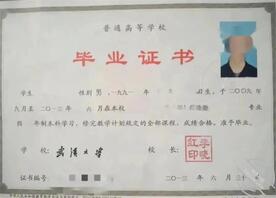 普通高等学校
毕业证书
学生 性别 男，一九九一年 日生，于二〇〇九年
九月至二〇一三年 六月在本校
年制本科学习，修完教学计划规定的全部课程，成绩合格，准予毕业。
学校：武汉大学 校长：李晓红印
证书编号 二〇一三年六月三十日